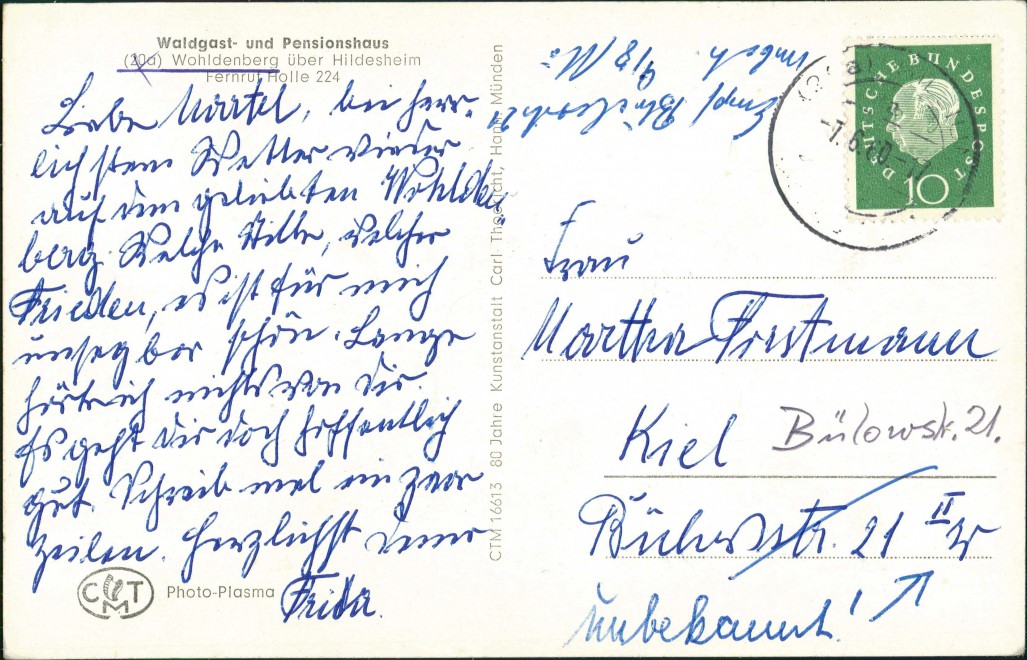 Waldgast- und Pensionshaus
(20a) Wohldenberg über Hildesheim
Fernruf Holle 224
Liebe Martel, bei herr-
lichstem Wetter wieder
auf dem geliebten Wohlden-
berg. Welche Stille, welcher
Frieden, es ist für mich
unsagbar schön. Lange
hörte ich nichts von Dir.
Es geht Dir doch hoffentlich
gut. Schreib mal ein paar
Zeilen. Herzlichst Deine
Frida.
CMT
Photo-Plasma
CTM 16613 80 Jahre Kunstanstalt Carl Thoericht, Hann. Münden
DEUTSCHE BUNDESPOST
10
-7.6.60-
Frau
Martha Forstmann
Kiel Bülowstr. 21.
Str. 21 II
unbekannt!